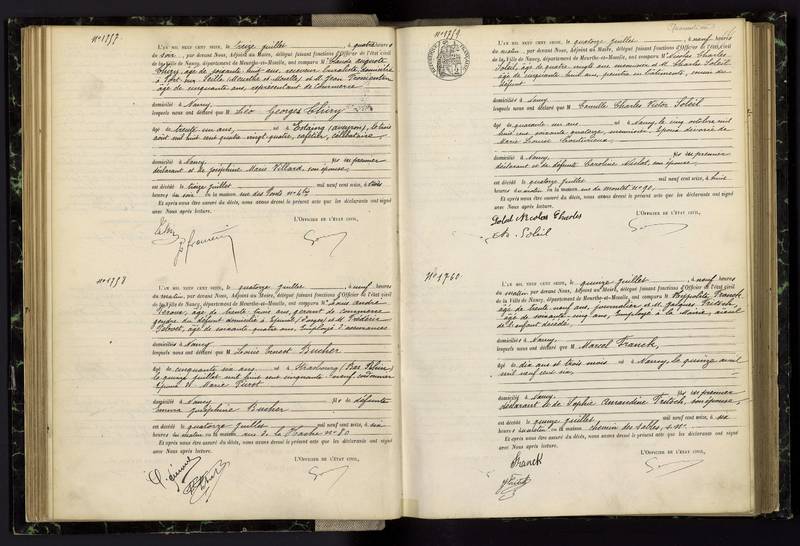 N° 1757
L'AN MIL NEUF CENT SEIZE, le treize juillet, à quatre heures
du soir, par devant Nous, Adjoint au Maire, délégué faisant fonctions d'Officier de l'état civil
de la Ville de Nancy, département de Meurthe-et-Moselle, ont comparu M
âgé de soixante huit ans, receveur buraliste domicilié
à
âgé de cinquante ans, représentant de
domiciliés à Nancy,
lesquels nous ont déclaré que M Léo Georges Thiry
âgé de trente un ans, né à Estaing (Aveyron), le
août mil huit cent quatre vingt quatre, cafetier, célibataire,
domicilié à Nancy, fils du premier
déclarant et de Joséphine Marie Villard, son épouse,
est décédé le treize juillet mil neuf cent seize, à trois
heures du soir en la maison rue des Ponts n°
Et après nous être assuré du décès, nous avons dressé le présent acte que les déclarants ont signé
avec Nous après lecture.
L'OFFICIER DE L'ÉTAT CIVIL,
N° 1758
L'AN MIL NEUF CENT SEIZE, le quatorze juillet, à neuf heures
du matin, par devant Nous, Adjoint au Maire, délégué faisant fonctions d'Officier de l'état civil
de la Ville de Nancy, département de Meurthe-et-Moselle, ont comparu M Louis André
âgé de trente ans, gérant de commerce
gendre du défunt domicilié à Épinal (Vosges) et M. Frédéric
âgé de soixante quatre ans, employé d'assurances
domicilié à Nancy
lesquels nous ont déclaré que M Louis Ernest Bucher
âgé de cinquante six ans né à Strasbourg (Bas Rhin)
le juillet mil huit cent cinquante neuf, cordonnier
époux de Marie
domicilié à Nancy fils de défunte
Emma Joséphine Bucher
est décédé le quatorze juillet mil neuf cent seize, à six
heures du matin en la maison rue de la Hache n° 80
Et après nous être assuré du décès, nous avons dressé le présent acte que les déclarants ont signé
avec Nous après lecture.
L'OFFICIER DE L'ÉTAT CIVIL,
N° 1759
L'AN MIL NEUF CENT SEIZE, le quatorze juillet, à neuf heures
du matin, par devant Nous, Adjoint au Maire, délégué faisant fonctions d'Officier de l'état civil
de la Ville de Nancy, département de Meurthe-et-Moselle, ont comparu M Nicolas Charles
Soleil, âgé de quatre vingt ans menuisier, et M. Charles Soleil
âgé de cinquante huit ans, peintre en bâtiments, cousin du
défunt
domiciliés à Nancy
lesquels nous ont déclaré que M Camille Charles Victor Soleil
âgé de quarante un ans né à Nancy, le cinq octobre mil
huit cent soixante quatorze, menuisier, époux divorcé de
Marie Louise
domicilié à Nancy fils du premier
déclarant et de défunte Caroline son épouse,
est décédé le quatorze juillet mil neuf cent seize, à huit
heures du matin en la maison rue du Montet n° 90,
Et après nous être assuré du décès, nous avons dressé le présent acte que les déclarants ont signé
avec Nous après lecture.
L'OFFICIER DE L'ÉTAT CIVIL,
Soleil Nicolas Charles
Ch. Soleil
N° 1760
L'AN MIL NEUF CENT SEIZE, le quinze juillet, à neuf heures
du matin, par devant Nous, Adjoint au Maire, délégué faisant fonctions d'Officier de l'état civil
de la Ville de Nancy, département de Meurthe-et-Moselle, ont comparu M Hippolyte Franck,
âgé de trente neuf ans, journalier et M. Jacques Fritsch,
âgé de soixante cinq ans, employé à la Mairie, aïeul
de l'enfant décédé,
domiciliés à Nancy,
lesquels nous ont déclaré que M Marcel Franck,
âgé de dix ans et trois mois né à Nancy, le quinze avril
mil neuf cent six,
domicilié à Nancy fils du premier
déclarant et de Sophie Amandine Fritsch, son épouse,
est décédé le quinze juillet, mil neuf cent seize, à six
heures du matin en la maison chemin des Sables, s. n°.
Et après nous être assuré du décès, nous avons dressé le présent acte que les déclarants ont signé
avec Nous après lecture.
L'OFFICIER DE L'ÉTAT CIVIL,
Franck